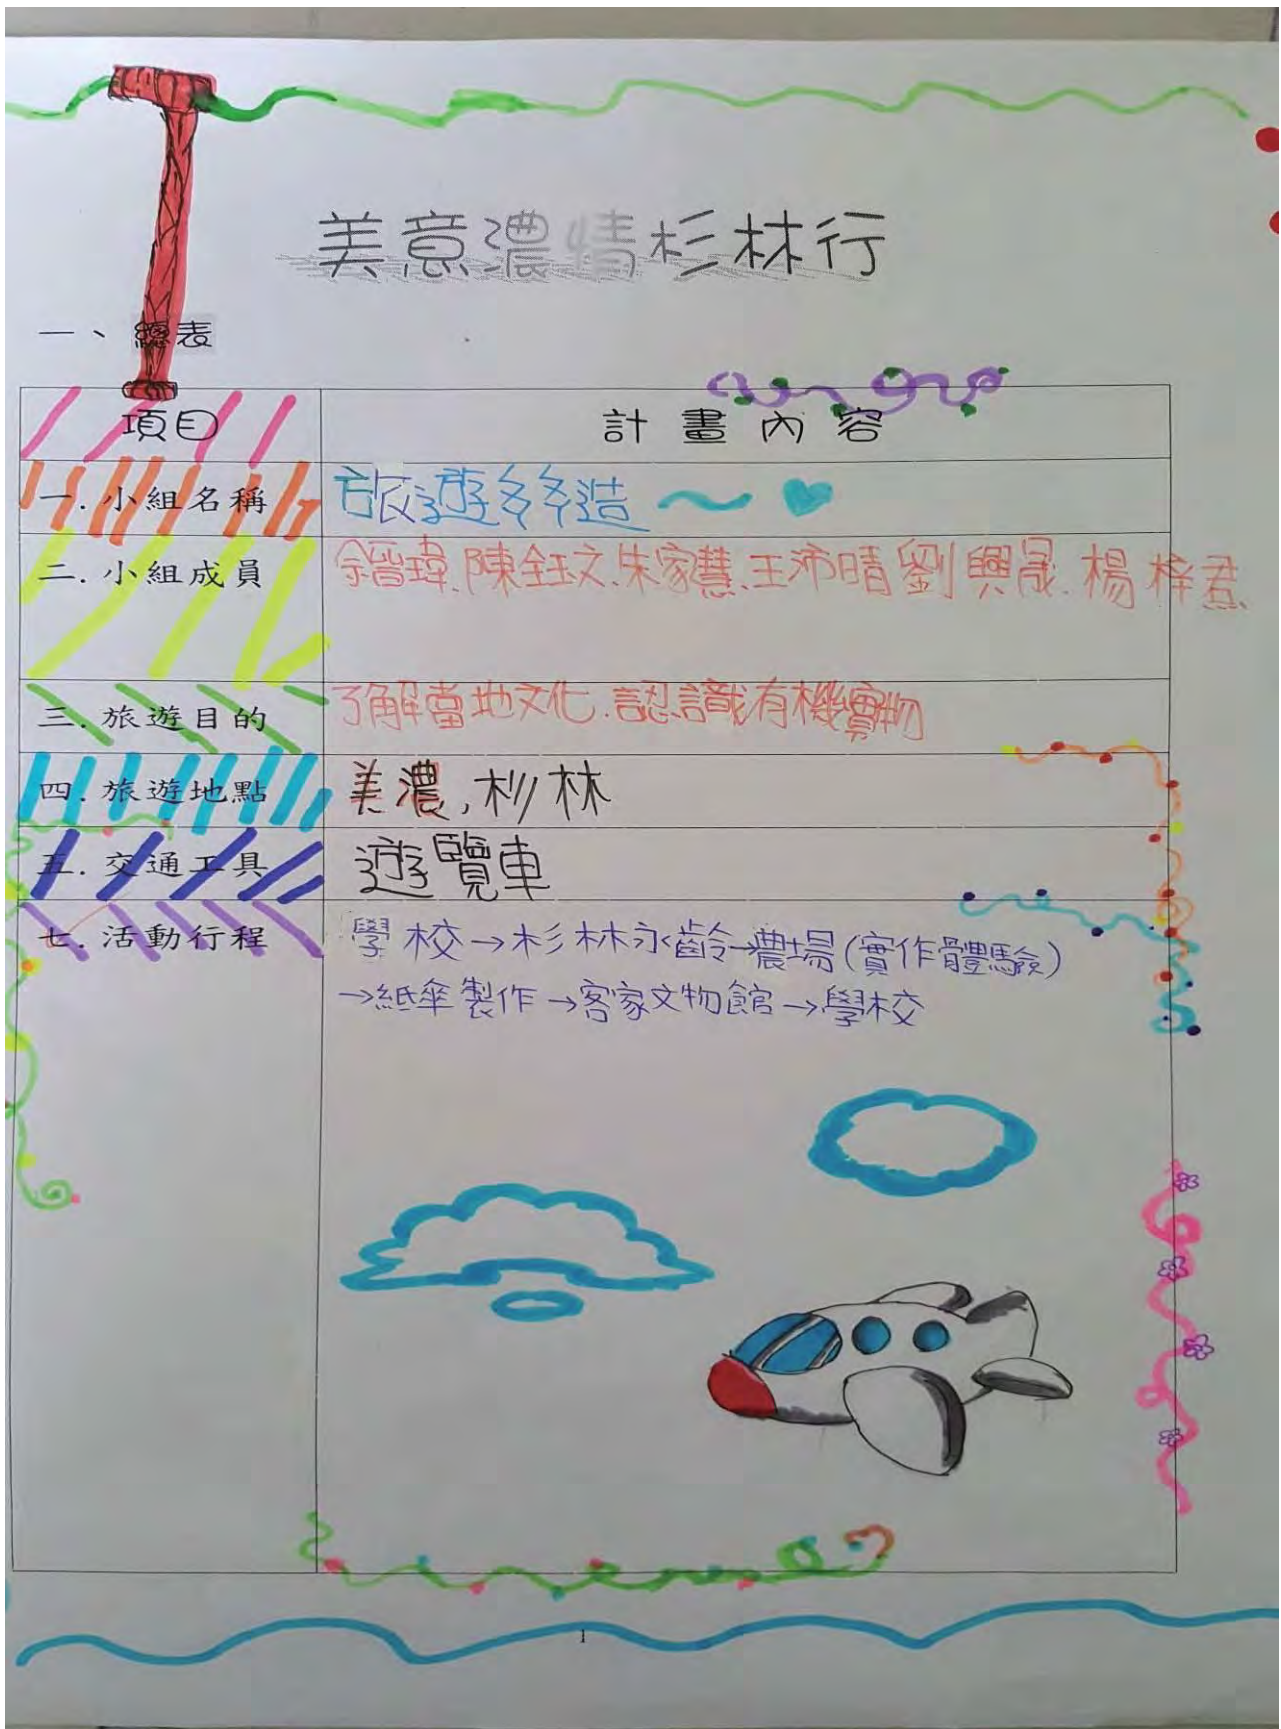 美意濃情杉林行
一、總表
項目 計畫內容
一.小組名稱 旅遊多多造
二.小組成員 余晉瑋、陳鈺文、朱家慧、王沛晴 劉興晟、楊梓君、
三.旅遊目的 了解當地文化、認識有機實物
四.旅遊地點 美濃,杉林
五.交通工具 遊覽車
七.活動行程 學校→杉林永齡→農場(實作體驗)
→紙傘製作→客家文物館→學校
1